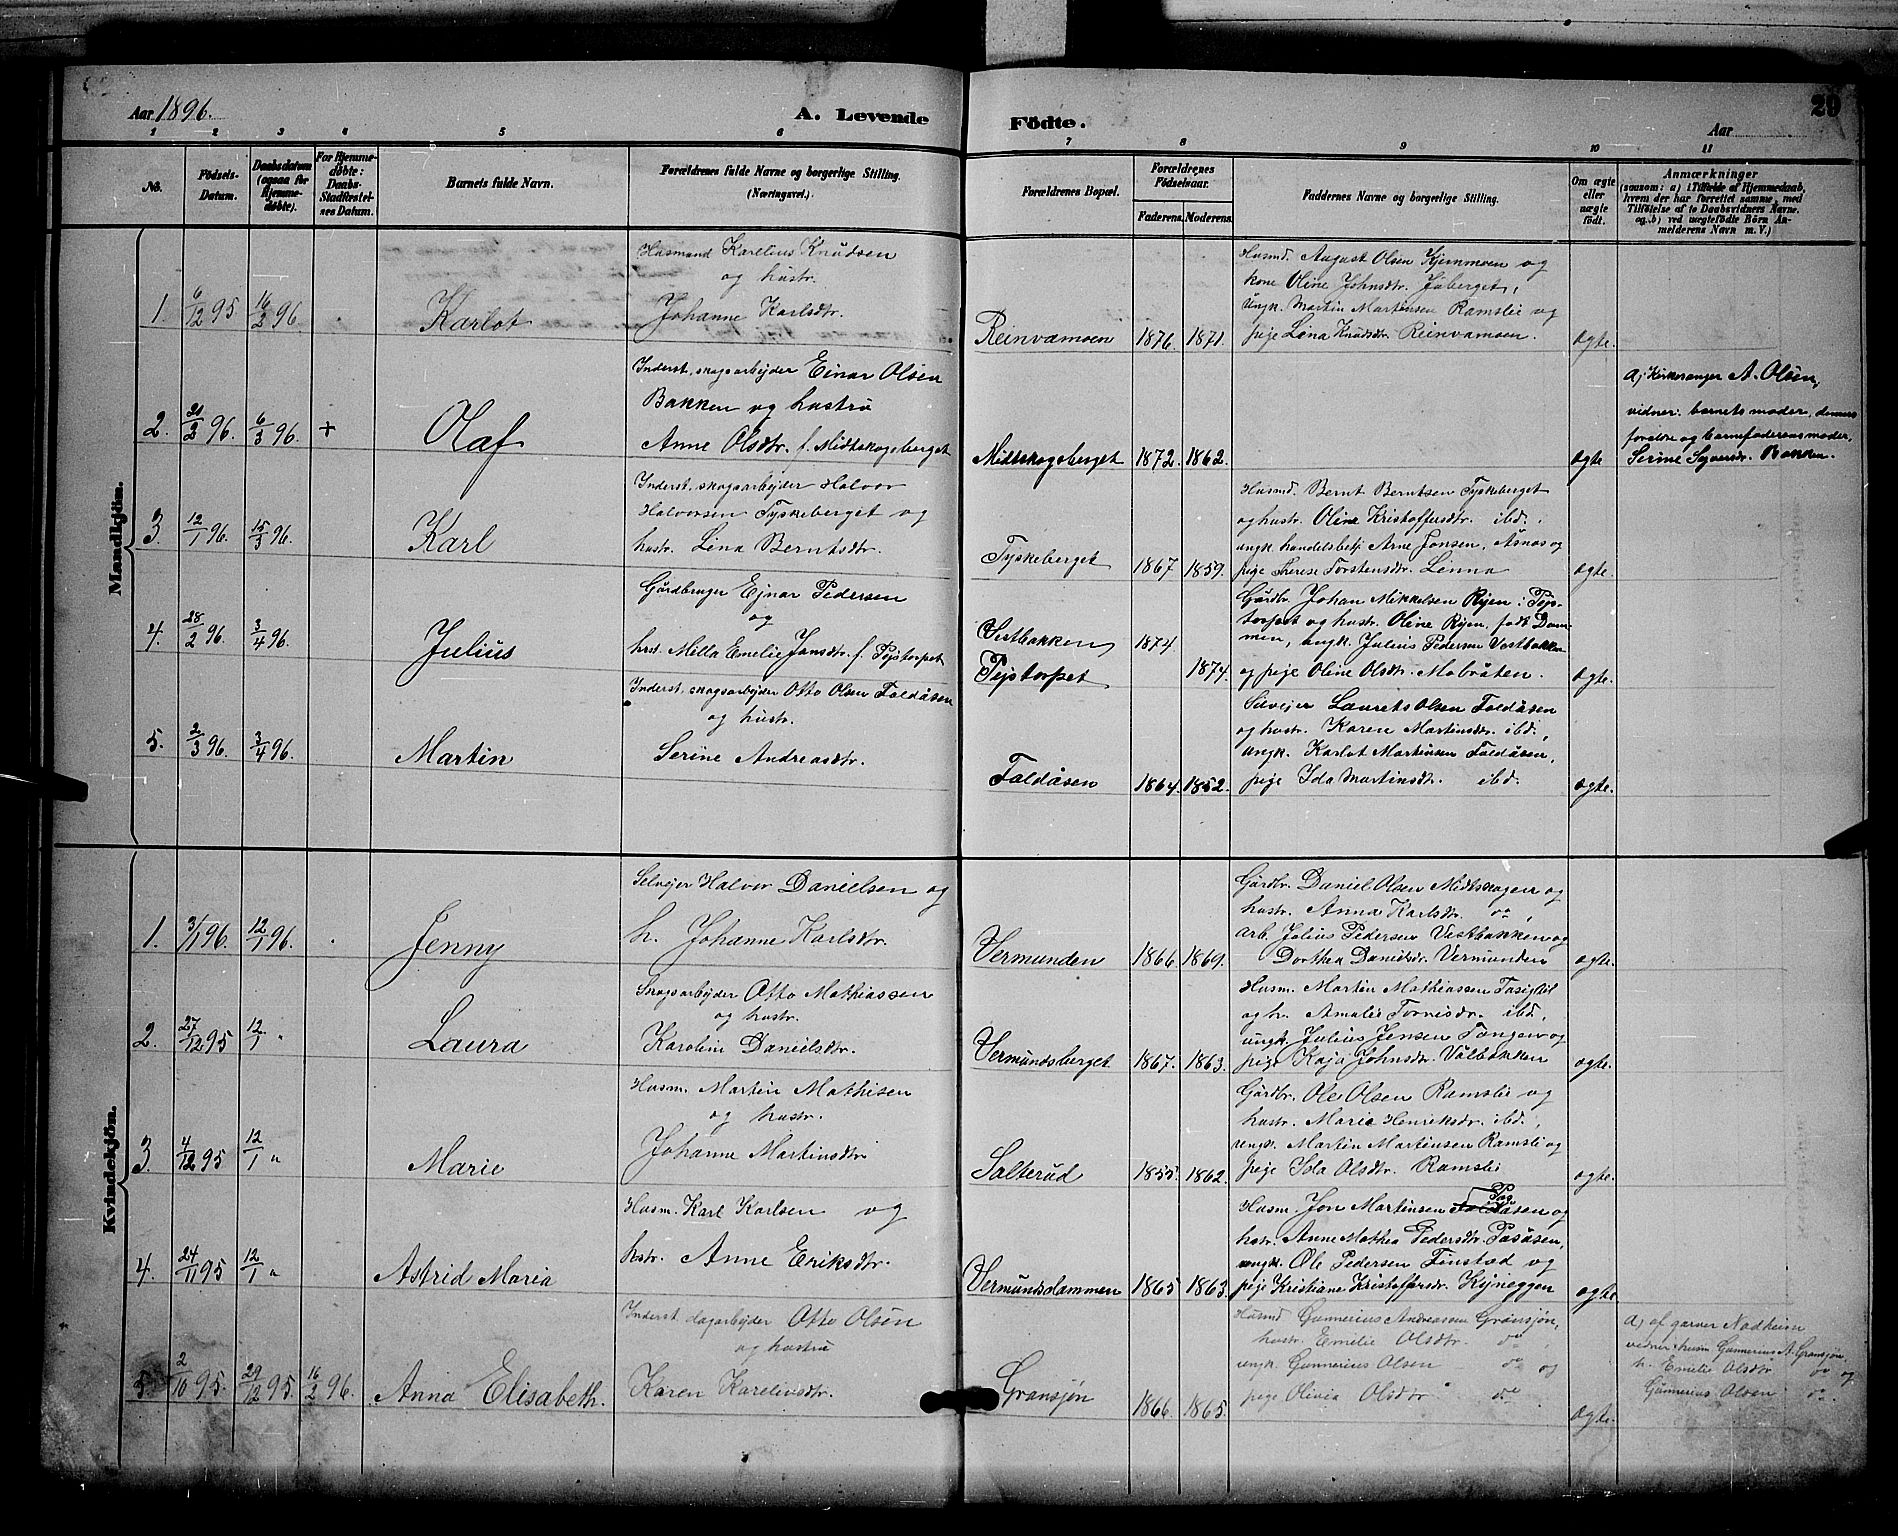 Aar 1896.
A. Levende Födte.
Aar
20
1 2 3 4 5 6 7 8 9 10 11
No.
Födsels-Datum.
Daabsdatum (ogsaa for Hjemme-döbte).
For Hjemme-döbte: Daabs-Stadfæstel-nes Datum.
Barnets fulde Navn.
Forældrenes fulde Navne og borgerlige Stilling. (Næringsvei.)
Forældrenes Bopæl.
Forældrenes Födselsaar.
Faderens. Moderens.
Faddernes Navne og borgerlige Stilling.
Om ægte eller uægte födt.
Anmærkninger
(saasom: a) i Tilfælde af Hjemmedaab,
hvem der har forrettet samme, med
Tilföielse af to Daabsvidners Navne,
og b) ved uægtefödte Börn An-
melderens Navn m. V.)
Mandkjön.
1. 6/12 95 16/2 96. Karlot
Husmand Karelius Knudsen
og hustr.
Johanne Karlsdtr.
Reinvamoen 1876. 1871.
Husmd. August Olsen Kjernmoen og
kone Oline Johnsdtr. Juberget,
ungk. Martin Martinsen Ramslie og
pige Lina Knudsdtr. Reinvamoen.
ægte.
2. 21/2 96. 6/3 96. + Olaf
Inderst, skogsarbejder Einar Olsen
Bakken og hustru
Anne Olsdtr. f. Midtskogsberget
Midtskogsberget 1872. 1862.
ægte
a) Kirkesanger A. Olsen,
vidner: barnets moder, dennes
forældre og barnefaderens moder,
Serine Syversdr. Bakken.
3. 12/1 96. 15/3 96. Karl
Inderst, skogsarbejder Halvor
Halvorsen Tyskeberget og
hustr. Lina Berntsdtr.
Tyskeberget 1867 1859.
Husmd. Bernt Berntsen Tyskeberget
og hustr. Oline Kristoffersdtr. ibd.,
ungk. handelsbetj. Arne Jonsen, Åsnæs og
pige Therese Torstensdtr. Linna
ægte.
4. 28/2 96. 3/4 96. Julius
Gårdbruger Ejnar Pedersen
og
hst. Milla Emelie Jonsdtr. f. Pejstorpet
Vestbakken 1874
Pejstorpet 1874.
Gårdbr. Johan Mikkelsen Ryen i Pejs-
torpet og hustr. Oline Ryen, født Dam-
men, ungk. Julius Pedersen Vestbakken
og pige Oline Olsdtr. Mobråten.
ægte.
5. 2/3 96. 3/4 96. Martin
Inderst, skogsarbejder Otto Olsen Foldåsen
og hustr.
Serine Andreasdtr.
Foldåsen 1864. 1852.
Selvejer Laurets Olsen Foldåsen
og hustr. Karen Martinsdtr. ibd.,
ungk. Karlot Martinsen Foldåsen,
pige Ida Martinsdtr. ibd.
ægte.
Kvindekjön.
1. 3/1 96. 12/1 96. Jenny
Selvejer Halvor Danielsen og
h. Johanne Karlsdtr.
Vermunden 1866 1869.
Gårdbr. Daniel Olsen Midtskogen og
hustr. Anna Karlsdtr. do,
arb. Julius Pedersen Vestbakken og
Dorthea Danielsdr. Vermunden
ægte.
2. 27/12 95 12/1 " Laura
Skogsarbejder Otto Mathiassen
og hustr.
Karoline Danielsdtr.
Vermundsberget 1867. 1863.
Husm. Martin Mathiassen
og h. Amalie ibd.,
ungk. Julius Jensen Tangen og
pige Kaja Johnsdtr. Valbakken
ægte.
3. 4/12 95 12/1 " Marie
Husm. Martin Mathisen
og hustr.
Johanne Martinsdtr
Salterud 1855. 1862.
Gårdbr. Ole Olsen Ramslie og
hustr. Maria Henriksdtr. ibd.,
ungk. Martin Martinsen Ramsli og
pige Ida Olsdtr. Ramsli
ægte.
4. 24/11 95 12/1 " Astrid Maria
Husm. Karl Karlsen og
hstr. Anne Eriksdtr.
Vermundsdammen 1865 1863.
Husm. Jon Martinsen Pasåsen og
hstr. Anne Mathea Pedersdtr. Pasåsen,
ungk. Ole Pedersen Finstad og
pige Kristiane Kristoffersdtr. Kyneggen
ægte
5. 2/10 95. 29/12 95. 16/2 96. Anna Elisabeth.
Inderst dagarbejder Otto Olsen
og hustru
Karen Kareliusdtr.
Gransjøn 1866. 1865.
Husmd Gunnerius Andreassen Gransjøn,
hustr. Emelie Olsdtr. do,
ungk. Gunnerius Olsen do og
pige Olivia Olsdtr do.
ægte.
a) af garver Nodheim
vidner: husm Gunnerius A. Gransjøn,
h. Emelie Olsdtr do og
Gunnerius Olsen do.